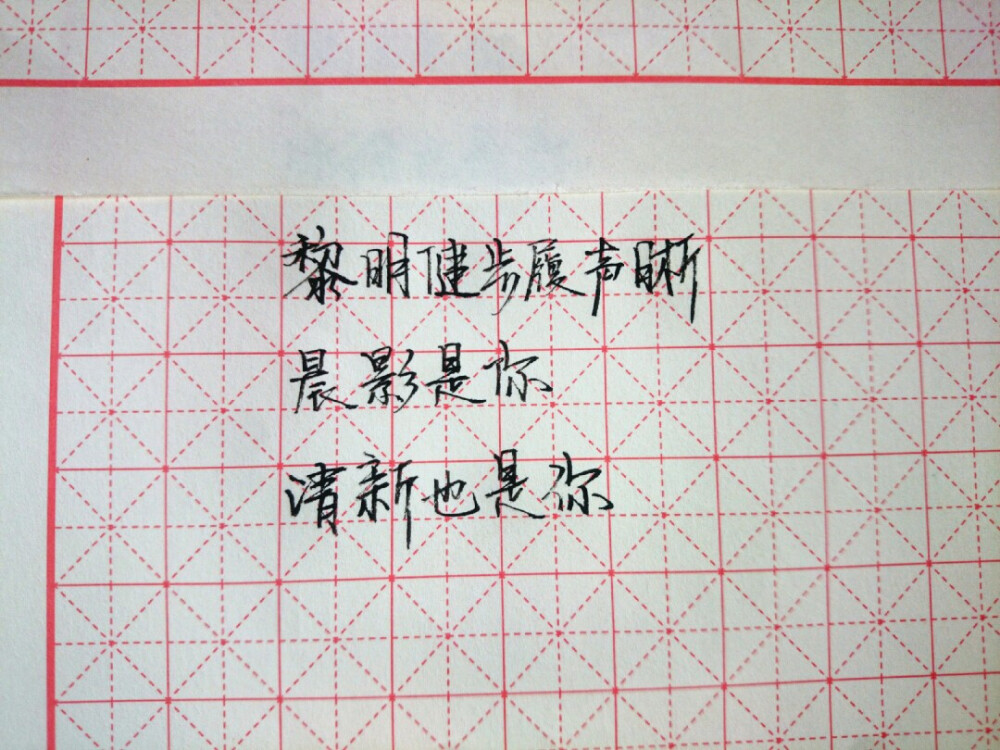 黎明健步履声晰
晨影是你
清新也是你